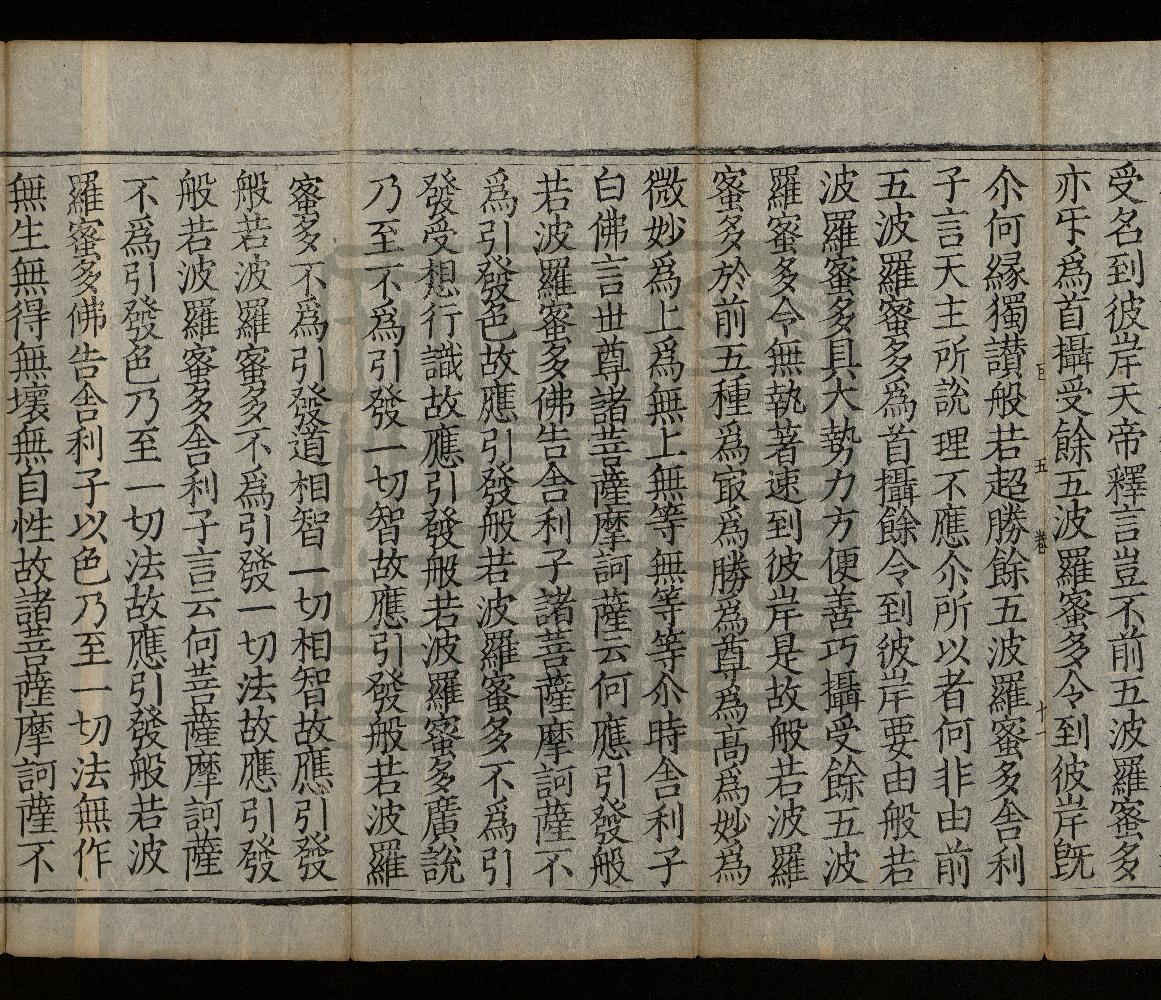 受名到彼岸天帝釋言豈不前五波羅蜜多
亦㸦爲首攝受餘五波羅蜜多令到彼岸旣
尒何緣獨讚般若超勝餘五波羅蜜多舎利
子言天主所說理不應尒所以者何非由前
五波羅蜜多爲首攝餘令到彼岸要由般若
波羅蜜多具大勢力方便善巧攝受餘五波
羅蜜多令無執著速到彼岸是故般若波羅
蜜多於前五種爲㝡爲勝爲尊爲髙爲妙爲
微妙爲上爲無上無等無等等尒時舎利子
白佛言世尊諸菩薩摩訶薩云何應引發般
若波羅蜜多佛告舎利子諸菩薩摩訶薩不
爲引發色故應引發般若波羅蜜多不爲引
發受想行識故應引發般若波羅蜜多廣說
乃至不爲引發一切智故應引發般若波羅
蜜多不爲引發道相智一切相智故應引發
般若波羅蜜多不爲引發一切法故應引發
般若波羅蜜多舎利子言云何菩薩摩訶薩
不爲引發色乃至一切法故應引發般若波
羅蜜多佛告舎利子以色乃至一切法無作
無生無得無壞無自性故諸菩薩摩訶薩不
五 卷 十一